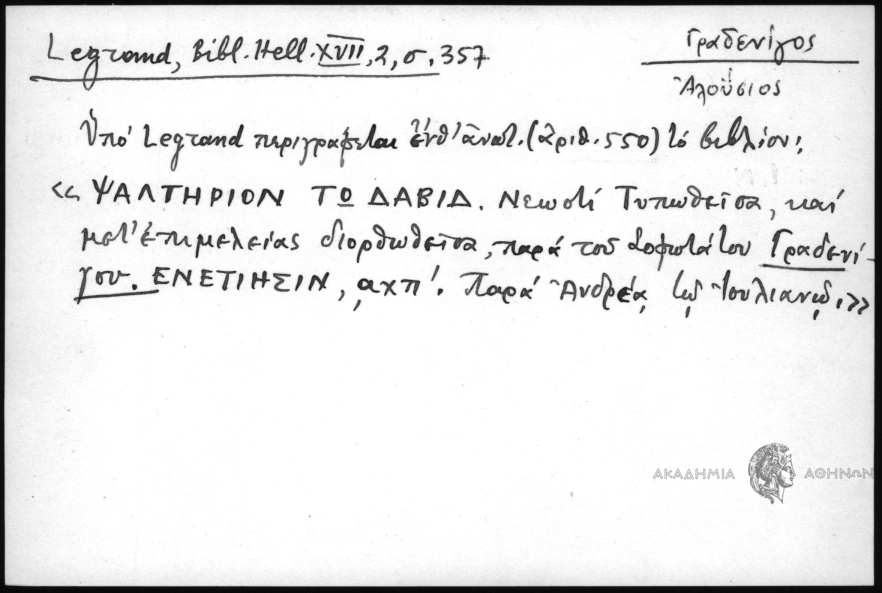 Legrand, Bibl. Hell. XVII, 2, σ. 357
Γραδενίγος
Ἀλοΰσιος
Ὑπό Legrand περιγράφεται ἔνθ' ἀνωτ. (ἀριθ. 550) τό βιβλίον:
«ΨΑΛΤΗΡΙΟΝ ΤΩ ΔΑΒΙΔ. Νεωστί Τυπωθεῖσα, καί
μετ' ἐπιμελείας διορθωθεῖσα, παρά τοῦ Σοφωτάτου Γραδενί-
γου. ΕΝΕΤΙΗΣΙΝ, ͵αχπ'. Παρά Ἀνδρέᾳ τῷ Ἰουλιανῷ.»
ΑΚΑΔΗΜΙΑ ΑΘΗΝΩΝ